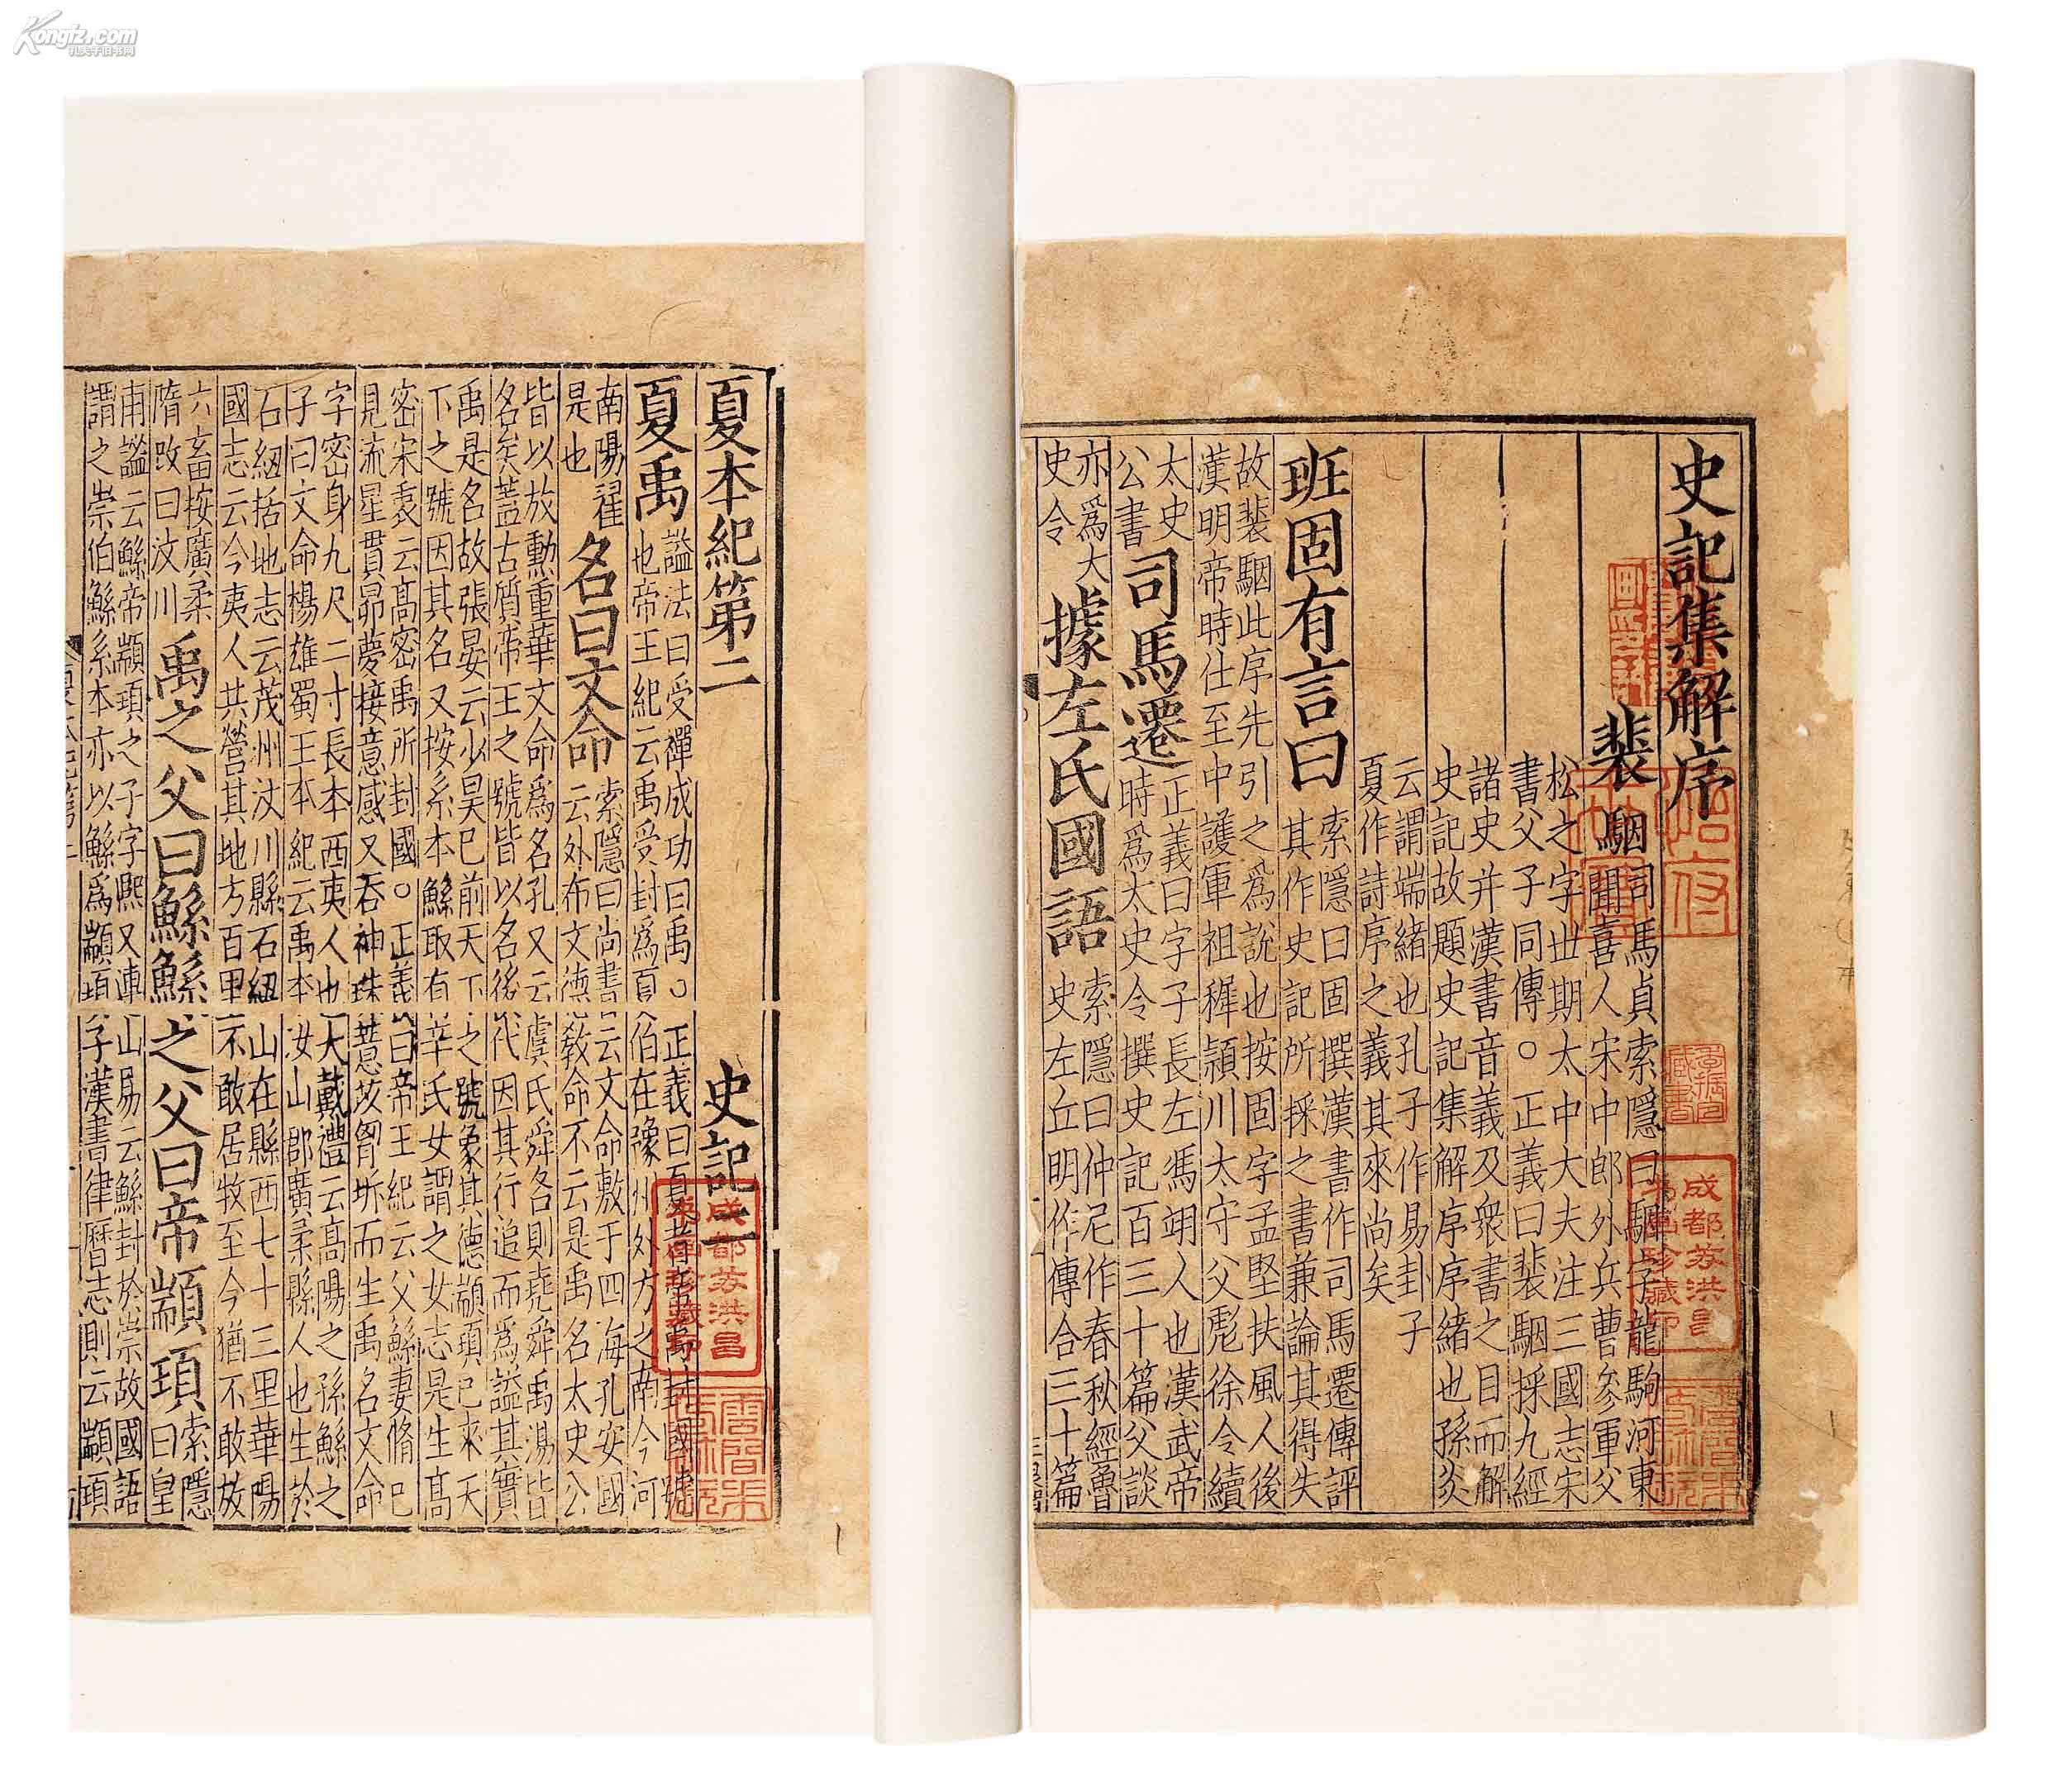 Kongfz.com
孔夫子旧书网
史記集解序
裴駰
司馬貞索隱曰駰字龍駒河東
聞喜人宋中郎外兵曹參軍父
松之字世期太中大夫注三國志宋
書父子同傳。正義曰裴駰採九經
諸史并漢書音義及衆書之目而解
史記故題史記集解序序緒也孫炎
云謂端緒也孔子作易卦子
夏作詩序之義其來尚矣
班固有言曰
索隱曰固撰漢書作司馬遷傳評
其作史記所採之書兼論其得失
故裴駰此序先引之爲說也按固字孟堅扶風人後
漢明帝時仕至中護軍祖穉潁川太守父彪徐令續
太史
公書
司馬遷
正義曰字子長左馮翊人也漢武帝
時爲太史令撰史記百三十篇父談
亦爲大
史令
據左氏國語
索隱曰仲尼作春秋經魯
史左丘明作傳合三十篇
夏本紀第二 史記二
夏禹
謚法曰受禪成功曰禹。正義曰夏者帝禹封國號
也帝王紀云禹受封爲夏伯在豫州外方之南今河
南陽翟
是也
名曰文命
索隱曰尚書云文命敷于四海孔安國
云外布文德教命不云是禹名太史公
皆以放勳重華文命爲名孔又云虞氏舜名則堯舜禹湯皆
名矣蓋古質帝王之號皆以名後代因其行追而爲謚其實
禹是名故張晏云少昊已前天下之號象其德顓頊已來天
下之號因其名又按系本鯀取有莘氏女謂之女志是生高
密宋衷云高密禹所封國。正義曰帝王紀云父鯀妻脩巳
見流星貫昴夢接意感又吞神珠薏苡胷坼而生禹名文命
字密身九尺二寸長本西夷人也大戴禮云高陽之孫鯀之
子曰文命楊雄蜀王本紀云禹本汶山郡廣柔縣人也生於
石紐括地志云茂州汶川縣石紐山在縣西七十三里華陽
國志云今夷人共營其地方百里不敢居牧至今猶不敢放
六畜按廣柔
隋改曰汶川
禹之父曰鯀鯀之父曰帝顓頊
索隱
曰皇
甫謐云鯀帝顓頊之子字熙又連山易云鯀封於崇故國語
謂之崇伯鯀系本亦以鯀爲顓頊子漢書律曆志則云顓頊